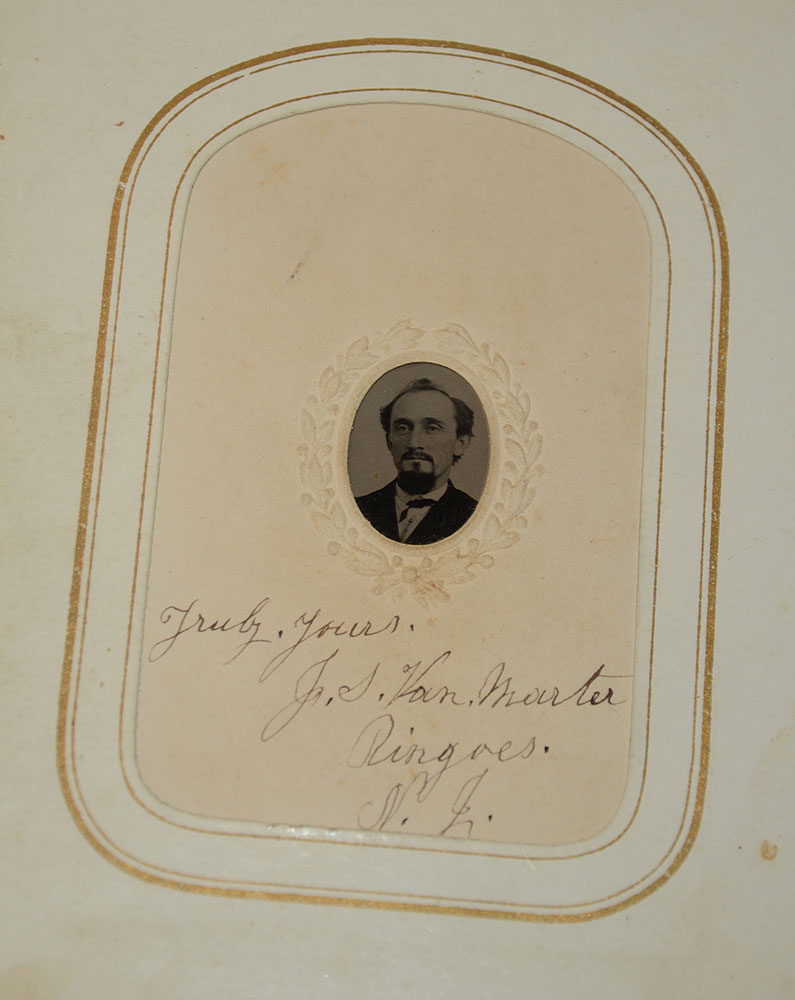 Truly. Yours.
J. S. Van. Marter
Ringoes.
N. J.